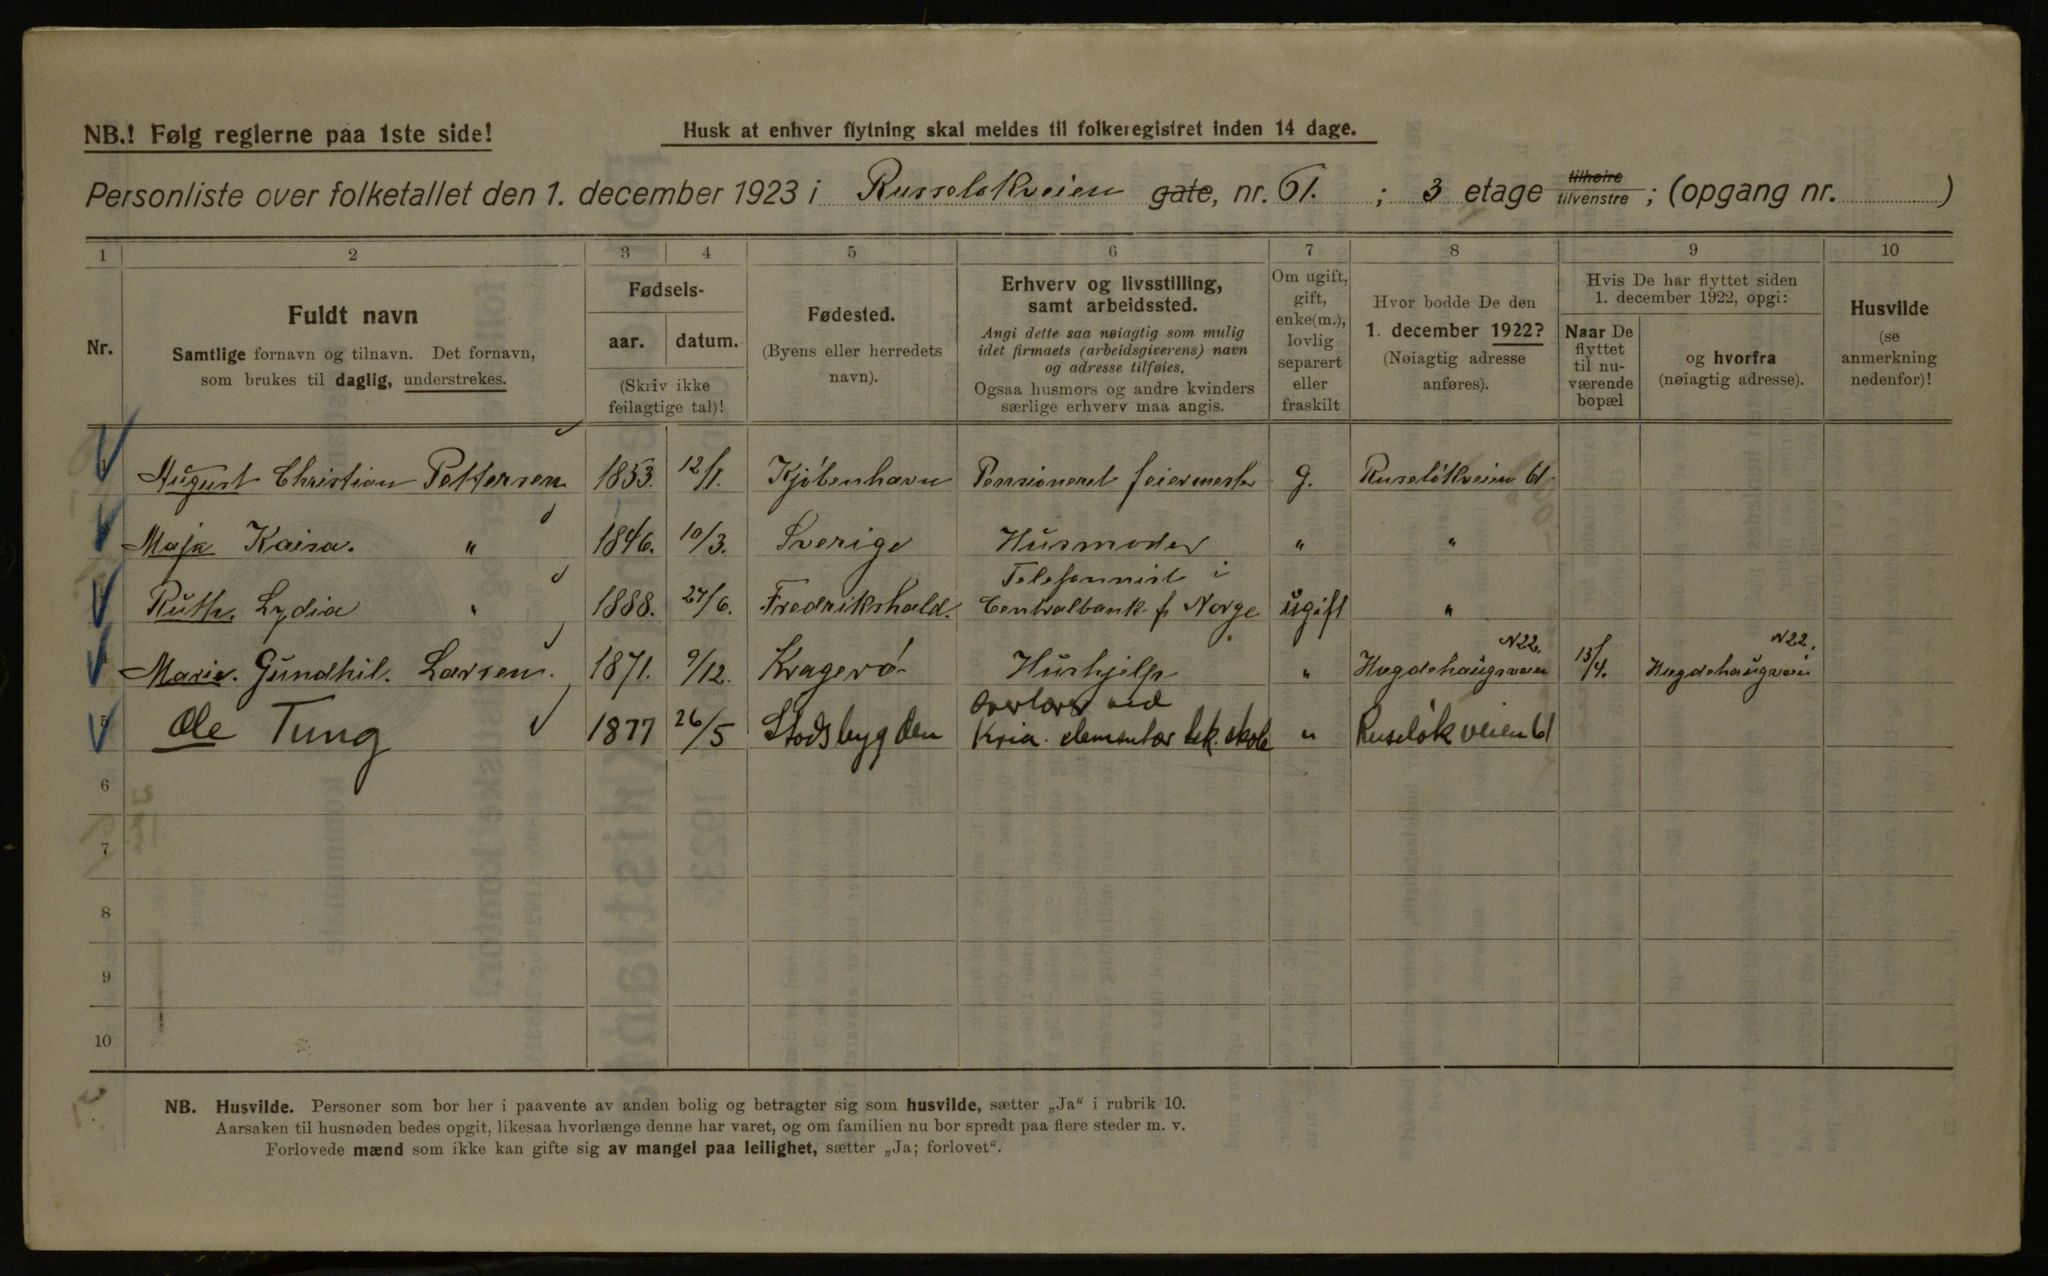 NB.! Følg reglerne paa 1ste side!
Husk at enhver flytning skal meldes til folkeregistret inden 14 dage.
Personliste over folketallet den 1. december 1923 i Russeløkveien gate, nr. 61. ; 3 etage tilhøire tilvenstre ; (opgang nr. )
1 2 3 4 5 6 7 8 9 10
Nr.
Fuldt navn
Samtlige fornavn og tilnavn. Det fornavn,
som brukes til daglig, understrekes.
Fødsels-
aar. datum.
(Skriv ikke
feilagtige tal)!
Fødested.
(Byens eller herredets
navn).
Erhverv og livsstilling,
samt arbeidssted.
Angi dette saa nøiagtig som mulig
idet firmaets (arbeidsgiverens) navn
og adresse tilføies.
Ogsaa husmors og andre kvinders
særlige erhverv maa angis.
Om ugift,
gift,
enke(m.),
lovlig
separert
eller
fraskilt
Hvor bodde De den
1. december 1922?
(Nøiagtig adresse
anføres).
Hvis De har flyttet siden
1. december 1922, opgi:
Naar De
flyttet
til nu-
værende
bopæl
og hvorfra
(nøiagtig adresse).
Husvilde
(se
anmerkning
nedenfor)!
August Christian Pettersen 1853. 12/1. Kjøbenhavn Pensioneret feiermester g. Ruseløkveien 61
Maja Kaisa. " 1846. 10/3. Sverige Husmoder " "
Ruth. Lydia " 1888. 27/6. Fredrikshald. Telefonnist i Centralbank f. Norge ugift "
Marie. Gundhil. Larsen. 1871. 9/12. Kragerø Hushjelp " Hægdehaugsveien N22. 13/4. Hægdehaugvein N22.
5 Ole Tung 1877 26/5 Stodsbygden Overlærer ved Kria. elementær tek. skole " Ruseløkveien 61
6
7
8
9
10
NB. Husvilde. Personer som bor her i paavente av anden bolig og betragter sig som husvilde, sætter „Ja“ i rubrik 10.
Aarsaken til husnøden bedes opgit, likesaa hvorlænge denne har varet, og om familien nu bor spredt paa flere steder m. v.
Forlovede mænd som ikke kan gifte sig av mangel paa leilighet, sætter „Ja; forlovet“.